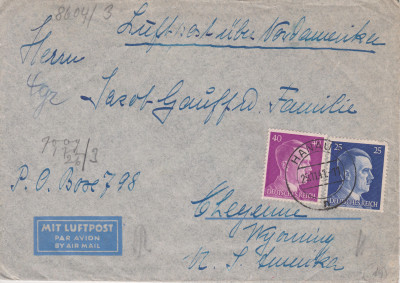 8604/3
Luftpost über Nordamerika
Herrn
Jacob Gauff sd. Familie
/3
P. O. Box 798
40
25 25
DEUTSCHES REICH
DEUTSCHES REICH
HANAU
Cheyenne
Wyoming
N. S. Amerika
MIT LUFTPOST
PAR AVION
BY AIR MAIL